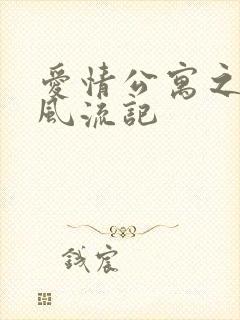 愛情公寓之
風流記
鐵宸